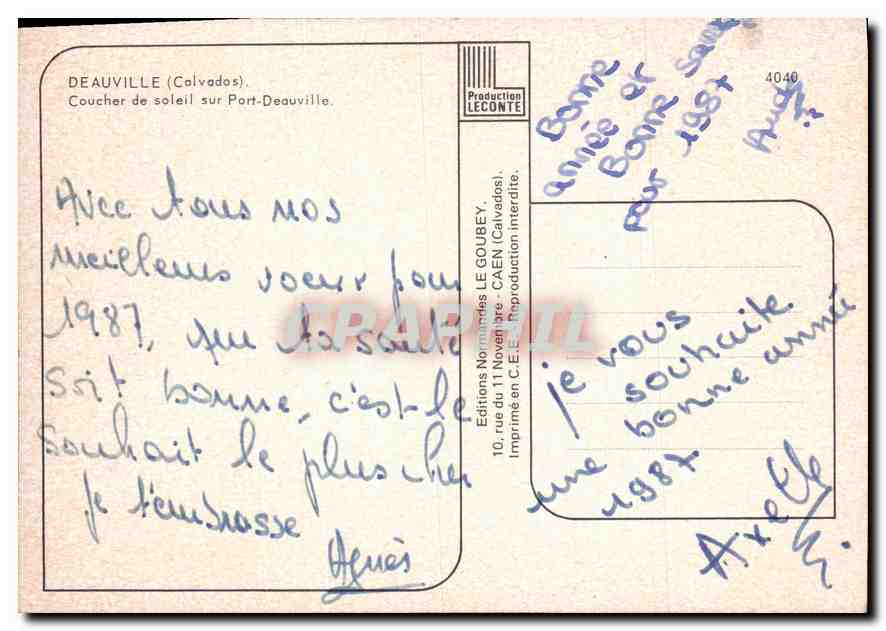 DEAUVILLE (Calvados).
Coucher de soleil sur Port-Deauville.
Production
LECONTE
4040
Avec tous nos
meilleurs voeux pour
1987, que ta santé
soit bonne, c'est le
souhait le plus cher
je t'embrasse
Agnès
Editions Normandes LE GOUBEY.
10, rue du 11 Novembre - CAEN (Calvados).
Imprimé en C.E.E. Reproduction interdite.
Bonne
année et
Bonne santé
pour 1987
je vous
souhaite
une bonne année
1987.
Axelle
CPAPHIL